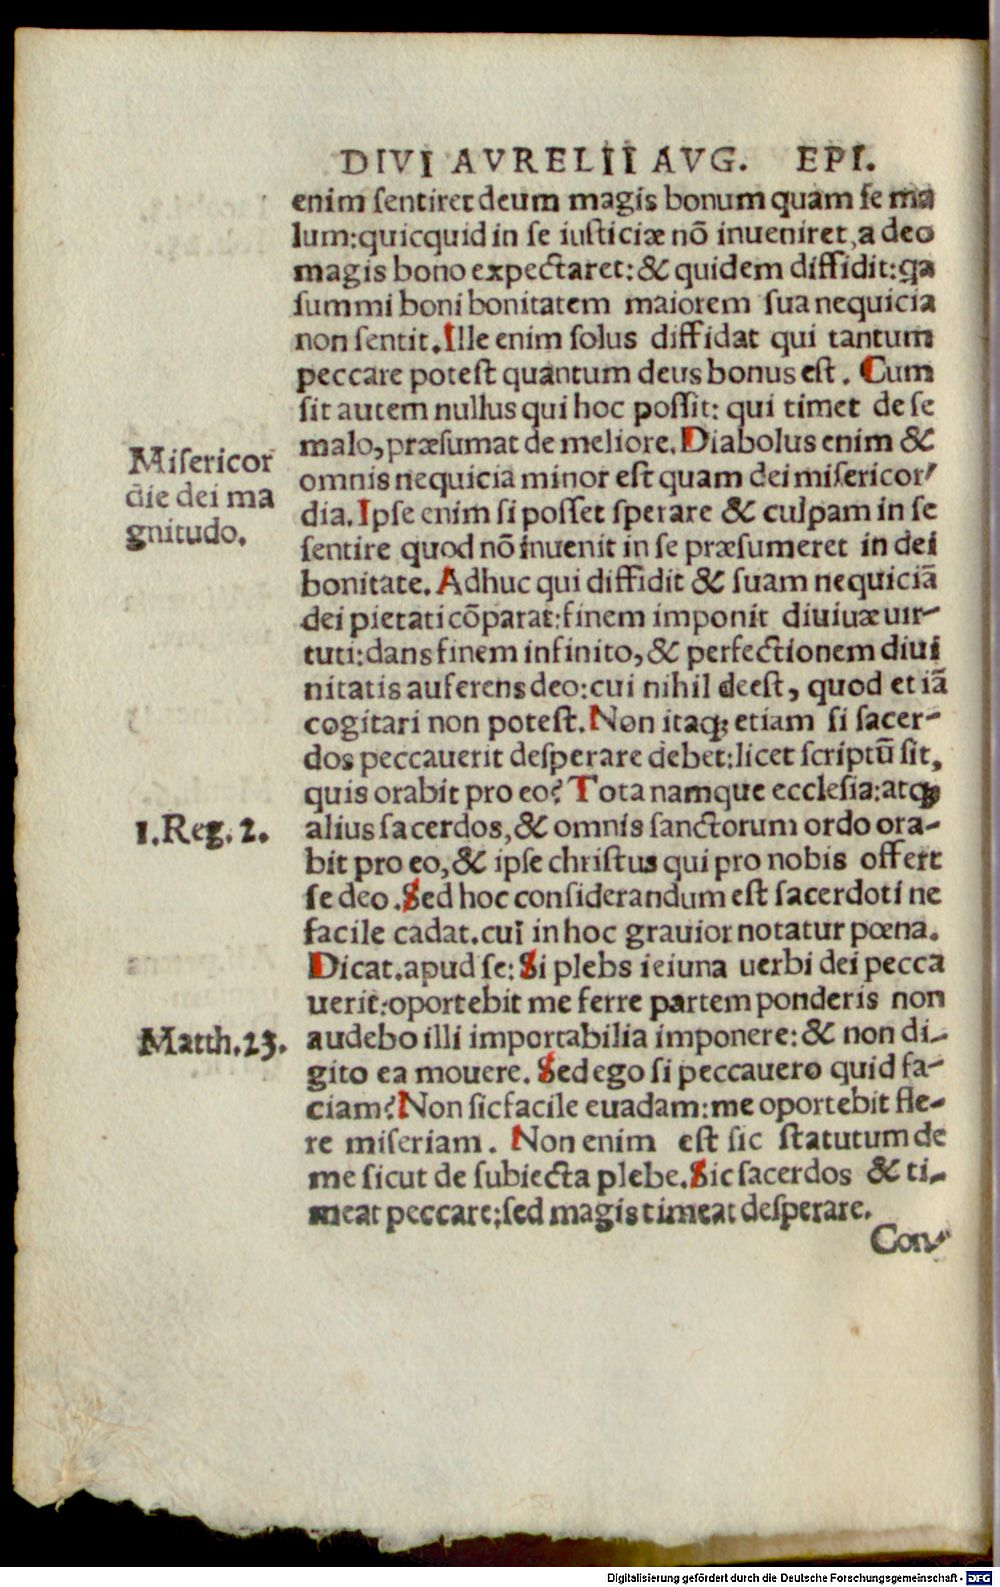 DIVI AVRELII AVG. EPI.
enim sentiret deum magis bonum quam se ma
lum:quicquid in se iusticiæ nō inueniret,a deo
magis bono expectaret:& quidem diffidit:qa
summi boni bonitatem maiorem sua nequicia
non sentit.Ille enim solus diffidat qui tantum
peccare potest quantum deus bonus est. Cum
sit autem nullus qui hoc possit: qui timet de se
malo,præsumat de meliore.Diabolus enim &
omnis nequicia minor est quam dei misericor/
dia.Ipse enim si posset sperare & culpam in se
sentire quod nō inuenit in se præsumeret in dei
bonitate.Adhuc qui diffidit & suam nequiciā
dei pietati cōparat:finem imponit diuiuæ uir-
tuti:dans finem infinito,& perfectionem diui
nitatis auferens deo:cui nihil deest, quod et iā
cogitari non potest.Non itaq; etiam si sacer-
dos peccauerit desperare debet:licet scriptū sit,
quis orabit pro eo? Tota namque ecclesia:atq;
alius sacerdos,& omnis sanctorum ordo ora-
bit pro eo,& ipse christus qui pro nobis offert
se deo.Sed hoc considerandum est sacerdoti ne
facile cadat.cui in hoc grauior notatur pœna.
Dicat.apud se:Si plebs ieiuna uerbi dei pecca
uerit:oportebit me ferre partem ponderis non
audebo illi importabilia imponere:& non di-
gito ea mouere.Sed ego si peccauero quid fa-
ciam?Non sic facile euadam:me oportebit fle-
re miseriam. Non enim est sic statutum de
me sicut de subiecta plebe.Sic sacerdos & ti-
meat peccare;sed magis timeat desperare.
Con/
Misericor
die dei ma
gnitudo.
1.Reg.2.
Matth.23.
Digitalisierung gefördert durch die Deutsche Forschungsgemeinschaft - DFG